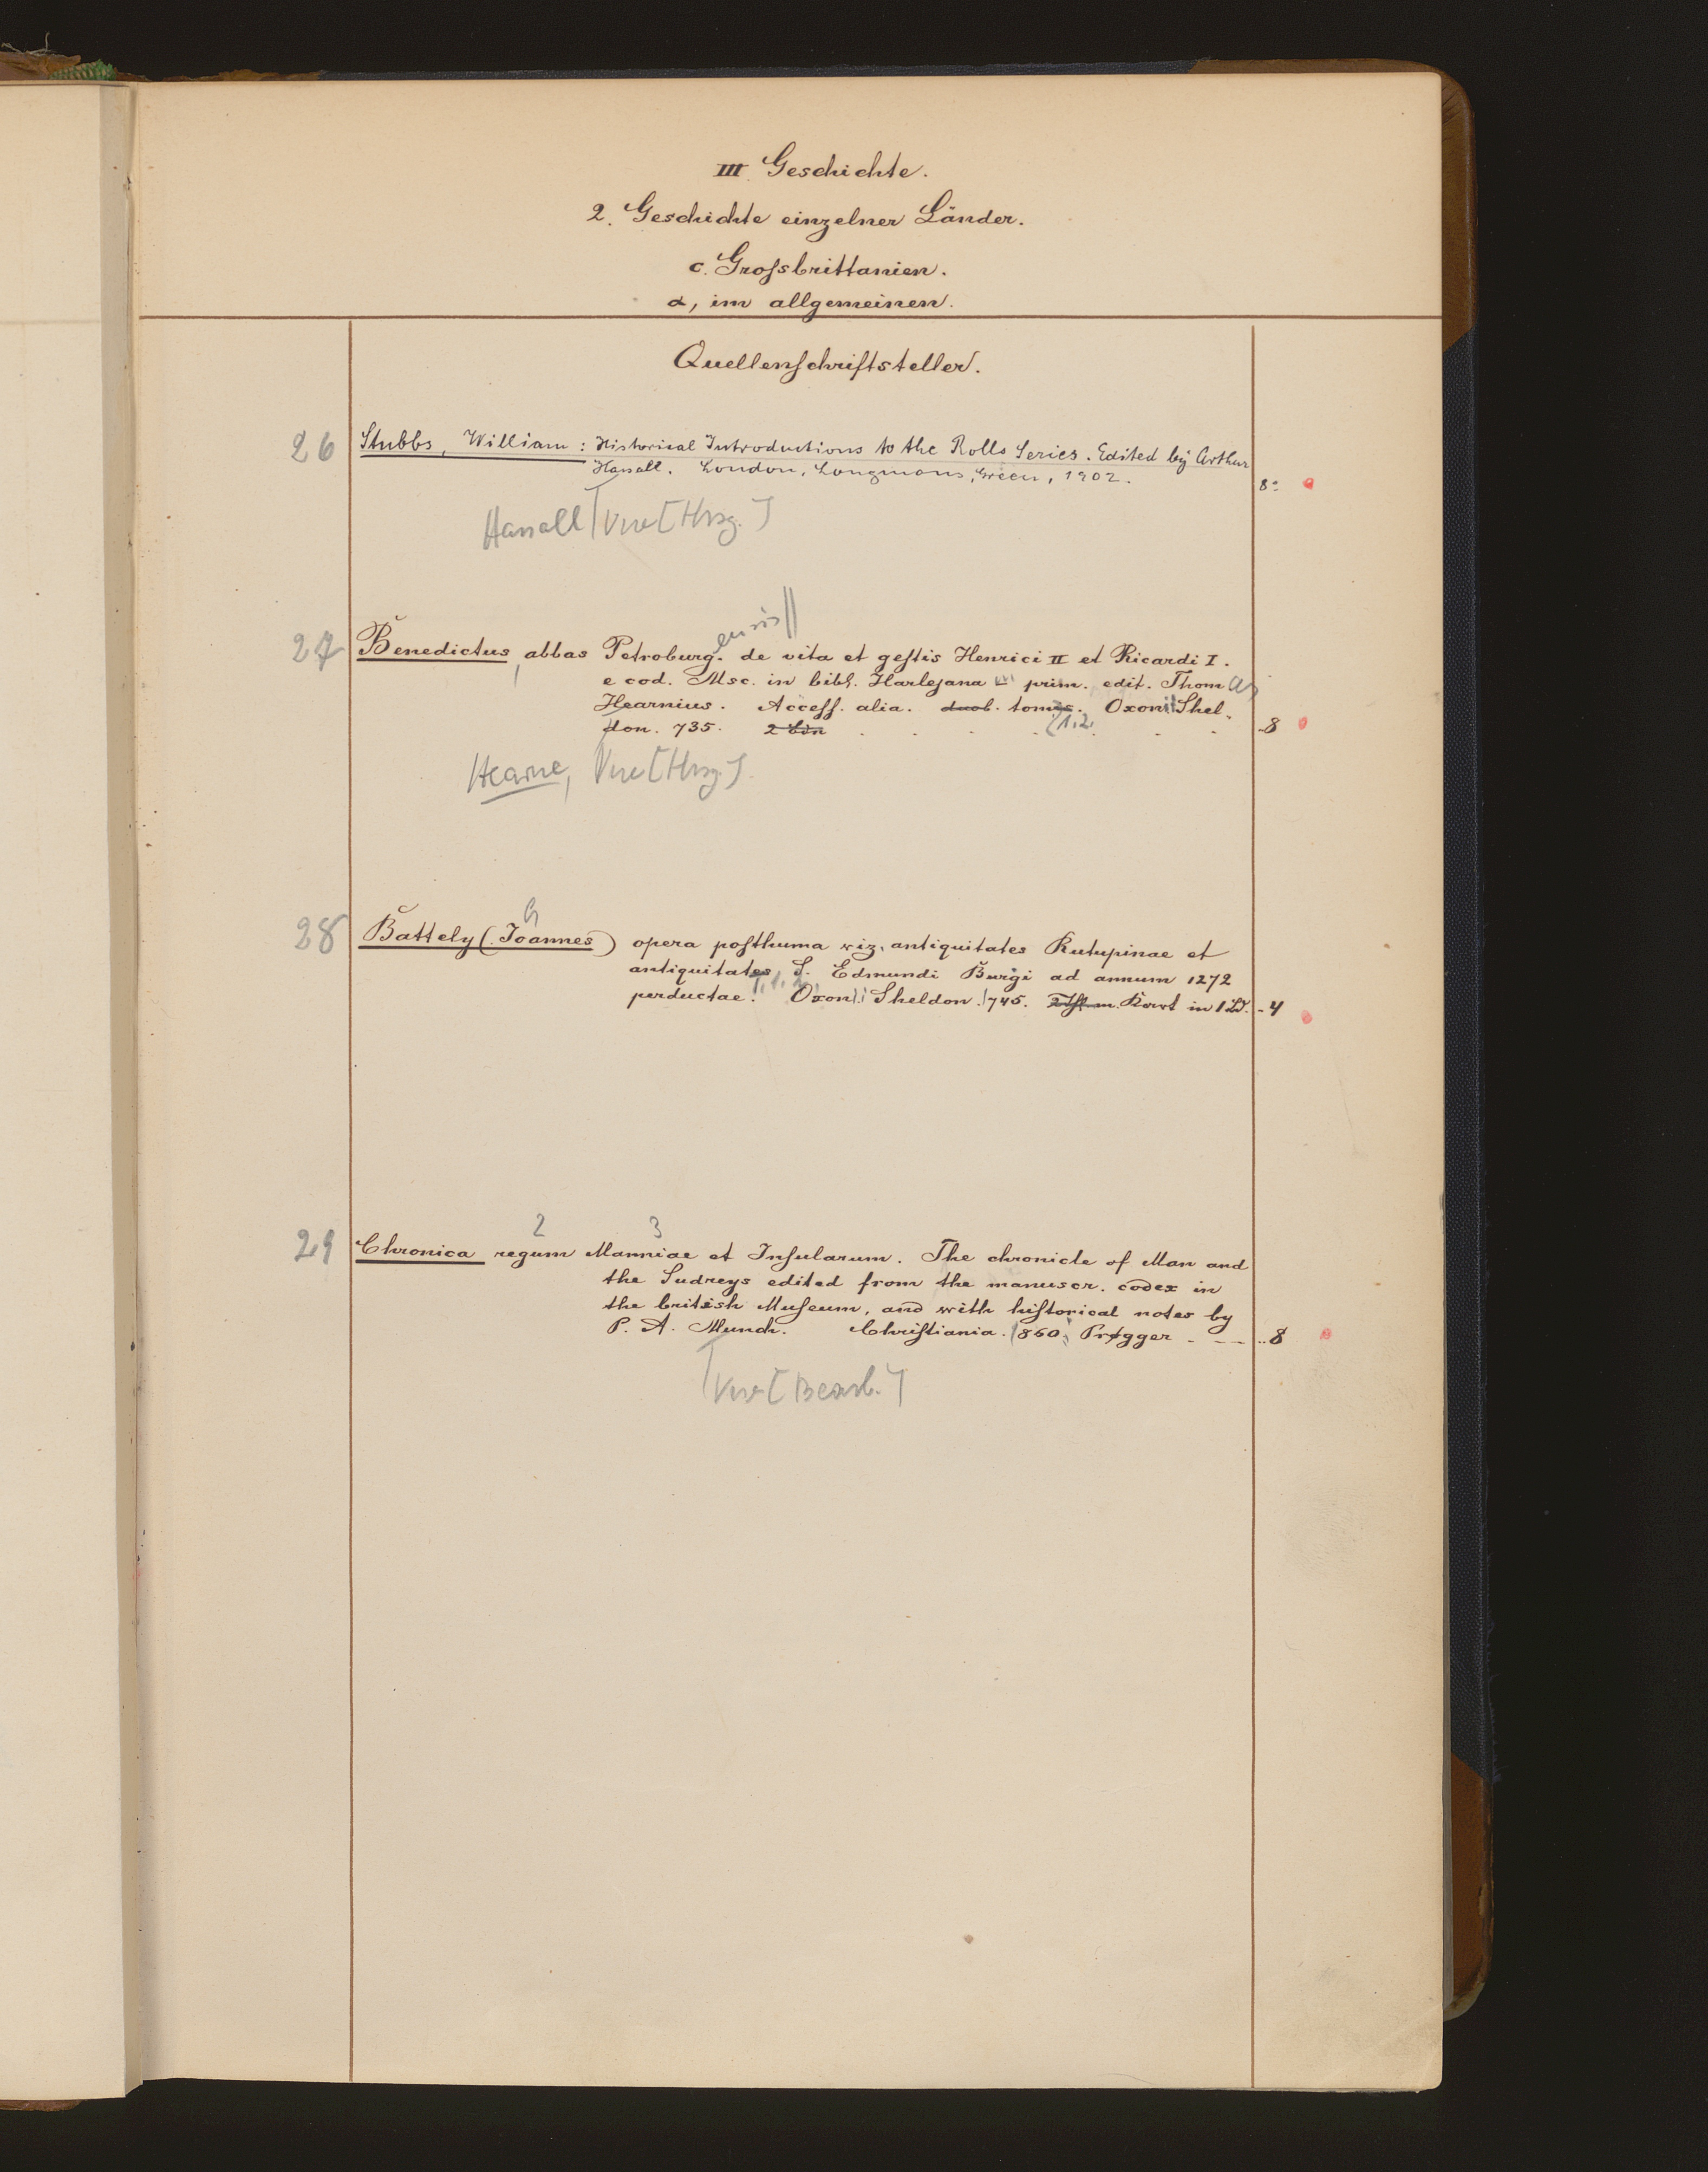 III Geschichte.
2. Geschichte einzelner Länder.
c. Grossbrittanien.
α, im allgemeinen.
Quellenschriftsteller.
26 Stubbs, William: Historical Introductions to the Rolls Series. Edited by Arthur
Hassall. London, Longmans, Green, 1902. 8°
Hassall Verw[Hrsg.]
ensis||
27 Benedictus, abbas Petroburg. de vita et gestis Henrici II et Ricardi I.
e cod. Msc. in bibl. Harlejana prim. edit. Thomas
Hearnius. Access. alia. duob. tomis. Oxonii Shel-
don. 735. 2 bdn (1.2. 8
Hearne, Verw[Hrsg.].
h
28 Battely (Joannes) opera posthuma viz. antiquitates Rutupinae et
antiquitates S. Edmundi Burgi ad annum 1272
perductae. T.1.2. Oxonii Sheldon. 1745. 2 Thl m. Kart in 1 Bd. - 4
2 3
29 Chronica regum Manniae et Insularum. The chronicle of Man and
the Sudreys edited from the manuscr. codex in
the british Museum, and with historical notes by
P. A. Munch. Christiania. 1860. Prøgger - - - .. 8
Verw[Bearb.]